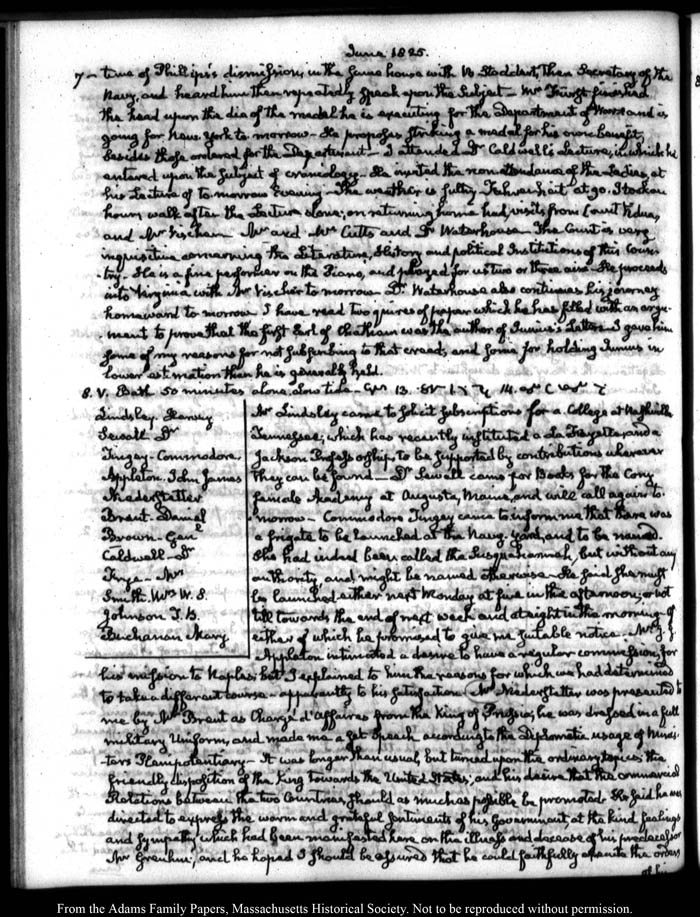 June 1825.
7 – time of Phillips's dismission, in the same house with B Stoddert, then Secretary of the
Navy, and heard him then repeatedly speak upon the subject – Mr Furst finished
the head upon the dia of the medal he is executing for the Department of War and is
going for New York to morrow – He proposes striking a medal for his own benefit,
besides those ordered for the Department – I attended Dr Caldwell's Lecture, in which he
entered upon the subject of craneology. He invited the non attendance of the Ladies, at
his Lecture of to morrow Evening – The weather is sultry Fahrenheit at 90. I took an
hours walk after the Lecture alone; on returning home had visits from Count Vidua,
and Mr Fischer Mr and Mrs Cutts and Dr Waterhouse – The Count is very
inquisitive concerning the Literature, History and political Institutions of this Coun-
try – He is a fine performer on the Piano, and played for us two or three airs – He proceeds
into Virginia with Mr Fischer to morrow. Dr Waterhouse also continues his journey
homeward to morrow. I have read two quires of paper which he has filled with an argu-
ment to prove that the first Earl of Chatham was the author of Junius's Letters – I gave him
some of my reasons for not subscribing to that creed, and some for holding Junius in
lower estimation than he is generally held.
8. V. Bath 50 minutes alone. Low tide –
Lindsley
Sewall Dr
Tingey – Commodore.
Appleton. John James
Niederstetter
Brent – Daniel
Brown – Genl
Caldwell – Dr
Frye – Mr
Smith. Mrs W. S.
Johnson T. B.
Buchanan Mary
Mr Lindsley came to solicit subscriptions for a College at Nashville
Tennessee; which has recently instituted a La Fayette and a
Jackson Professorship, to be supported by contributions wherever
they can be found – Dr Sewall came for Books for the Cony
female Academy at Augusta, Maine, and will call again to-
morrow – Commodore Tingey came to inform me that there was
a frigate to be launched at the Navy-Yard, and to be named.
She had indeed been called the Susquehannah, but without any
authority and might be named otherwise – He said she must
be launched either next Monday at five in the afternoon, or not
till towards the end of next week and at eight in the morning – of
either of which he promised to give me suitable notice. Mr J. J.
Appleton intimated a desire to have a regular commission, for
his mission to Naples; but I explained to him the reasons for which we had determined
to take a different course – apparently to his satisfaction. Mr Niederstetter was presented to
me by Mr Brent as Chargé d'Affaires from the King of Prussia; he was dressed in a full
military Uniform, and made me a set Speech according to the Diplomatic usage of Minis-
ters Plenipotentiary – It was longer than usual, but turned upon the ordinary topics the
friendly disposition of the King towards the United States; and his desire that the commercial
Relations between the two Countries, should as much as possible be promoted. He said he was
directed to express the warm and grateful sentiments of his Government at the kind feelings
and sympathy which had been manifested here on the illness and decease of his predecessor
Mr Greuhm; and he hoped I should be assured that he could faithfully execute the orders
of his
From the Adams Family Papers, Massachusetts Historical Society. Not to be reproduced without permission.